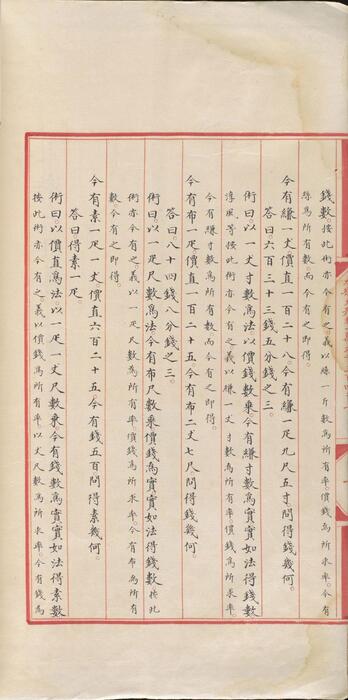 錢數。按此術亦今有之義以絲一斤數爲所有率。價錢爲所求率。今有
絲爲所有數而今有之即得。
今有縑一丈價直一百二十八。今有縑一疋九尺五寸。問得錢幾何。
答曰。六百三十三錢五分錢之三。
術曰。以一丈寸數爲法以價錢數乘今有縑寸數爲實實如法得錢數
淳風等按此術亦今有之義以縑一丈寸數爲所有率。價錢爲所求率。
今有縑寸數爲所有數而今有之即得。
今有布一疋價直一百二十五。今有布二丈七尺。問得錢幾何。
答曰。八十四錢八分錢之三。
術曰。以一疋尺數爲法今有布尺數乘價錢爲實實如法得錢數。按此
術亦今有之義以一疋尺數爲所有率。價錢爲所求率。今有布爲所有
數今有之即得。
今有素一疋一丈價直六百二十五。今有錢五百問得素幾何。
答曰。得素一疋。
術曰。以價直爲法以一疋一丈尺數乘今有錢數爲實實如法得素數
按此術亦今有之義以價錢爲所有率。以丈尺數爲所求率。今有錢爲